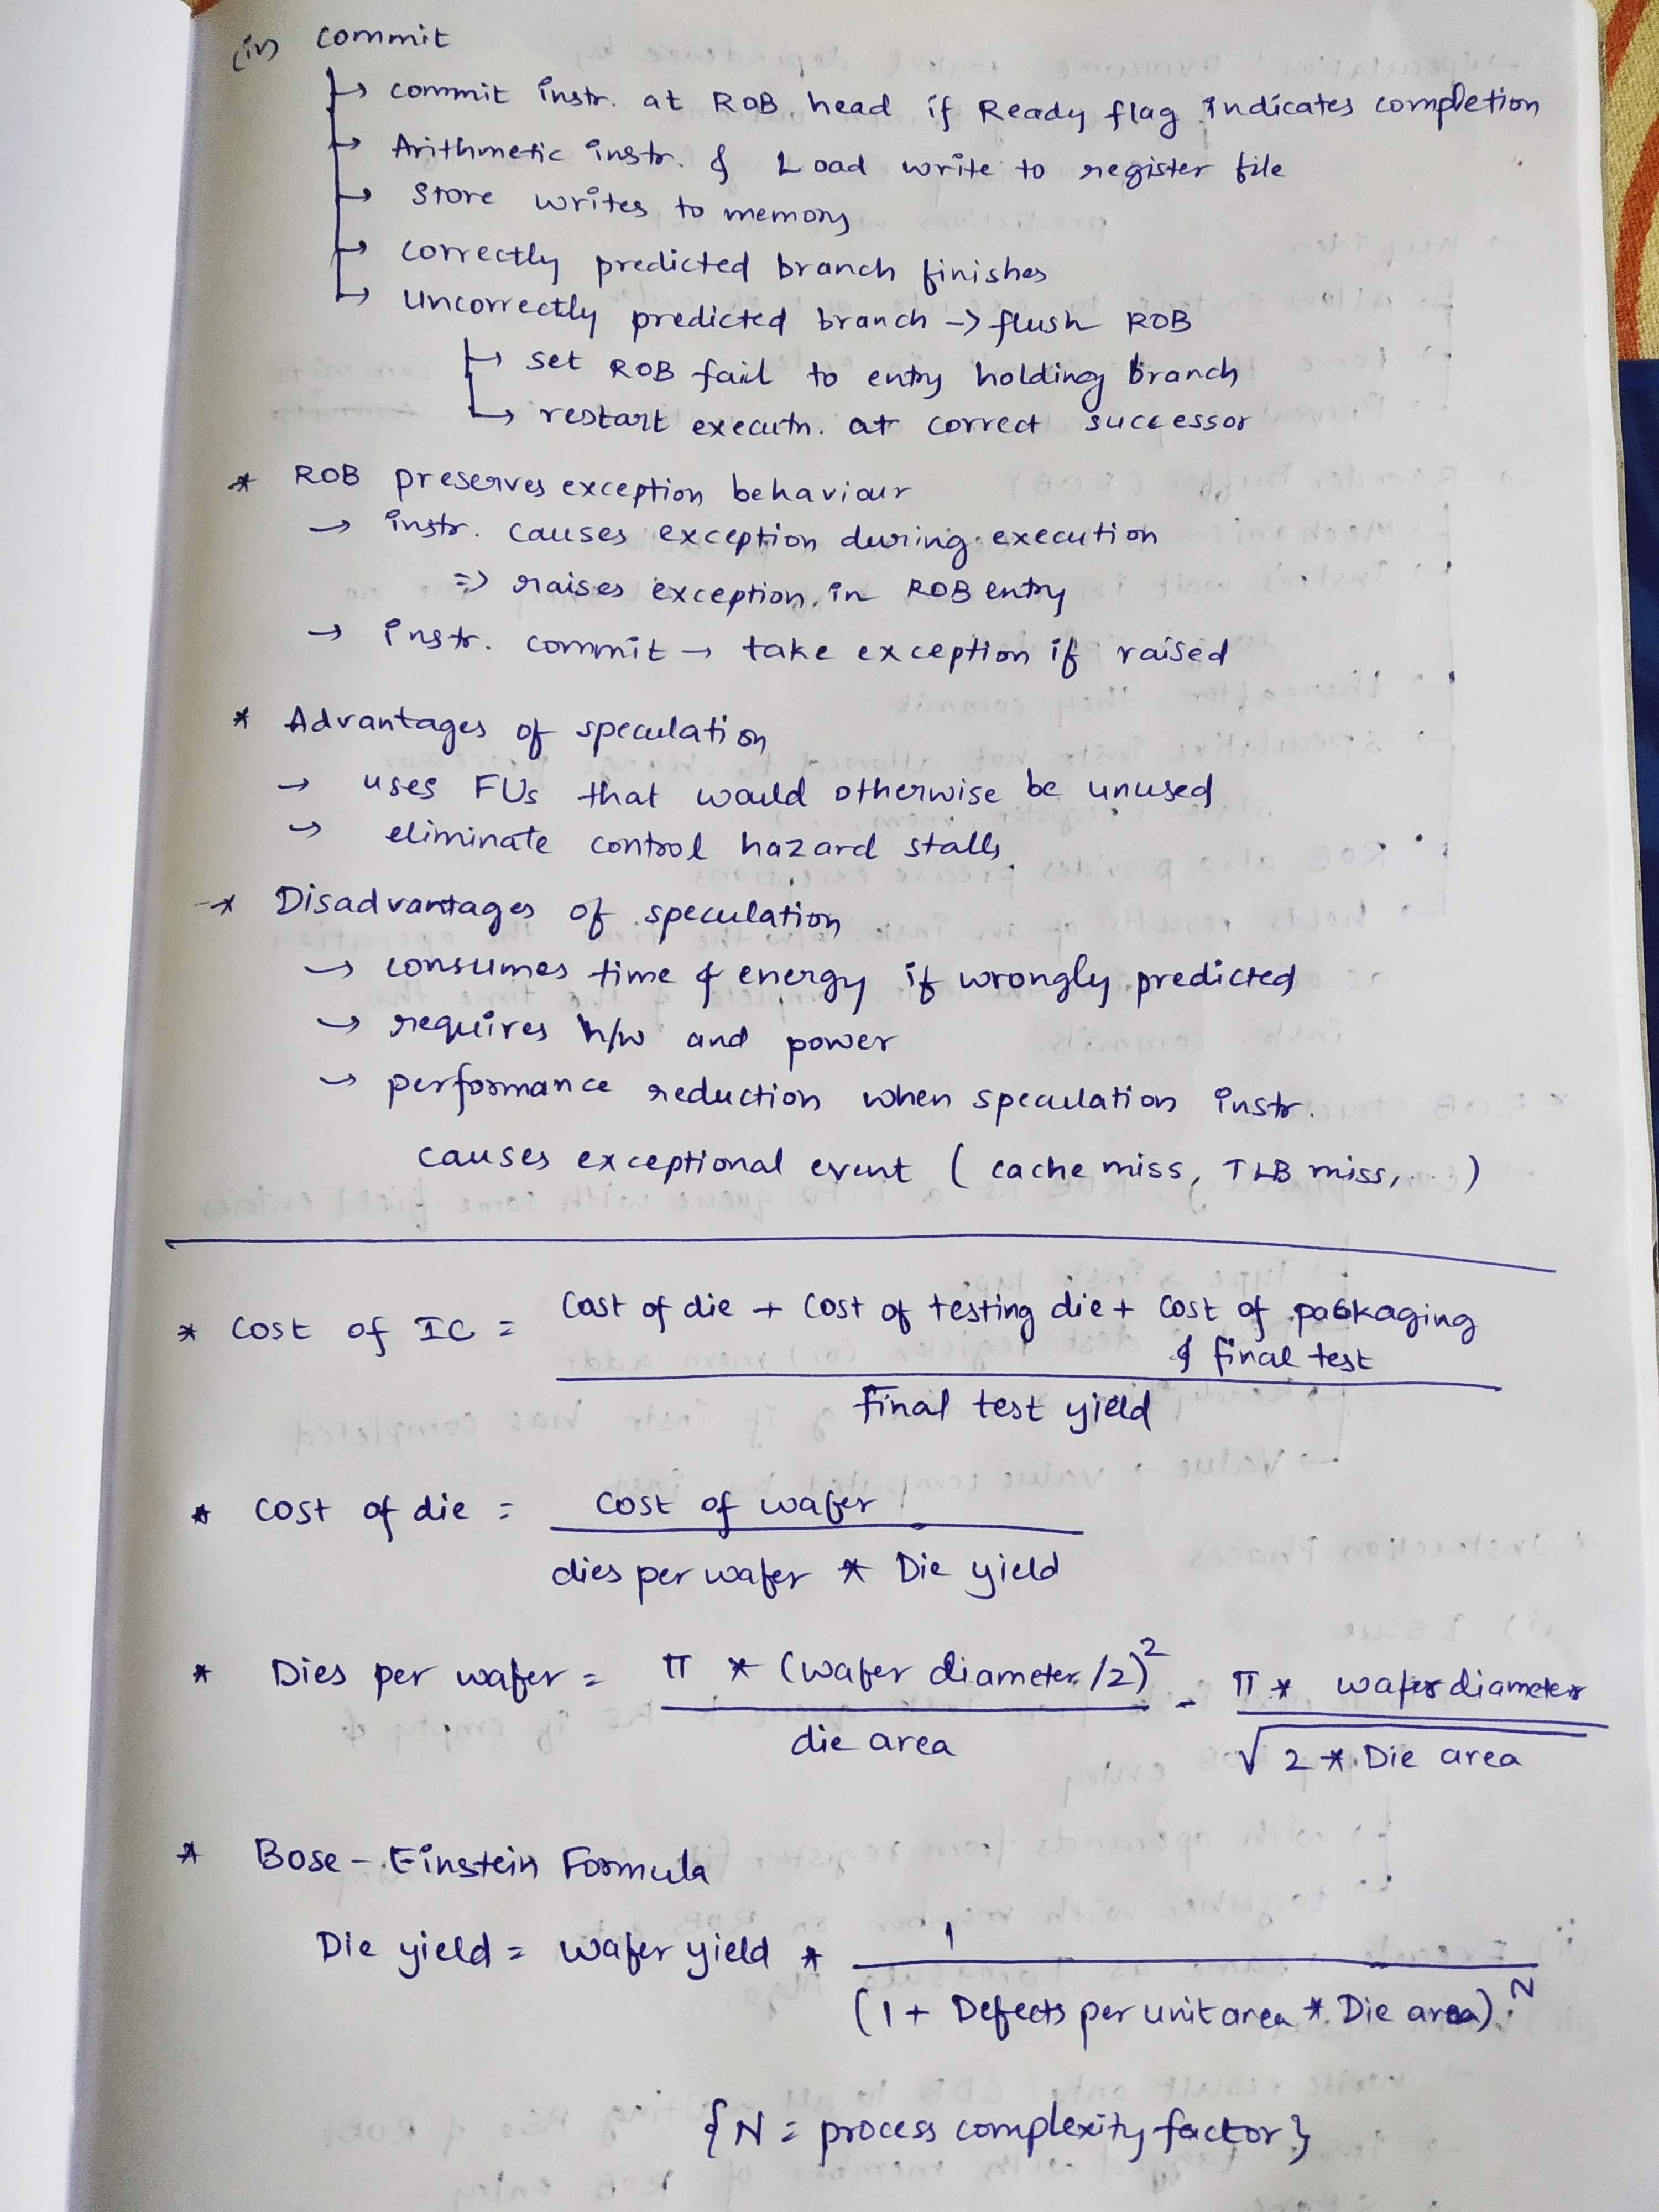 (iv) commit
→ commit instr. at ROB head if Ready flag indicates completion
→ Arithmetic instr. & Load write to register file
→ Store writes to memory
→ correctly predicted branch finishes
→ uncorrectly predicted branch → flush ROB
→ set ROB fail to entry holding branch
→ restart executn. at correct successor
* ROB preserves exception behaviour
→ instr. causes exception during execution
=> raises exception in ROB entry
→ instr. commit → take exception if raised
* Advantages of speculation
→ uses FUs that would otherwise be unused
→ eliminate control hazard stalls
* Disadvantages of speculation
→ consumes time & energy if wrongly predicted
→ requires h/w and power
→ performance reduction when speculation instr.
causes exceptional event ( cache miss, TLB miss, ... )
* Cost of IC = Cost of die + Cost of testing die + Cost of packaging
& final test
Final test yield
* Cost of die = Cost of wafer
dies per wafer * Die yield
* Dies per wafer = π * (wafer diameter/2)² - π * wafer diameter
die area √ 2 * Die area
* Bose-Einstein Formula
Die yield = wafer yield * 1
(1 + Defects per unit area * Die area)^N
{N = process complexity factor}